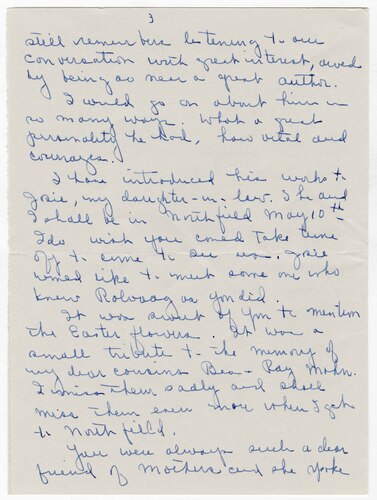 3
still remembers listening to our
conversation with great interest, awed
by being so near a great author.
I could go on about him in
so many ways. What a great
personality he had, how vital and
courageous.
I have introduced his works to
Josie, my daughter-in-law. She and
I shall be in Northfield May 10th
I do wish you could take time
off to come to see us. Josie
would like to meet some one who
knew Rolvaag as you did.
It was sweet of you to mention
the Easter flowers. It was a
small tribute to the memory of
my dear cousins Bea - Ray Mohn.
I miss them sadly and shall
miss them even more when I get
to Northfield.
You were always such a dear
friend of Mothers and she spoke